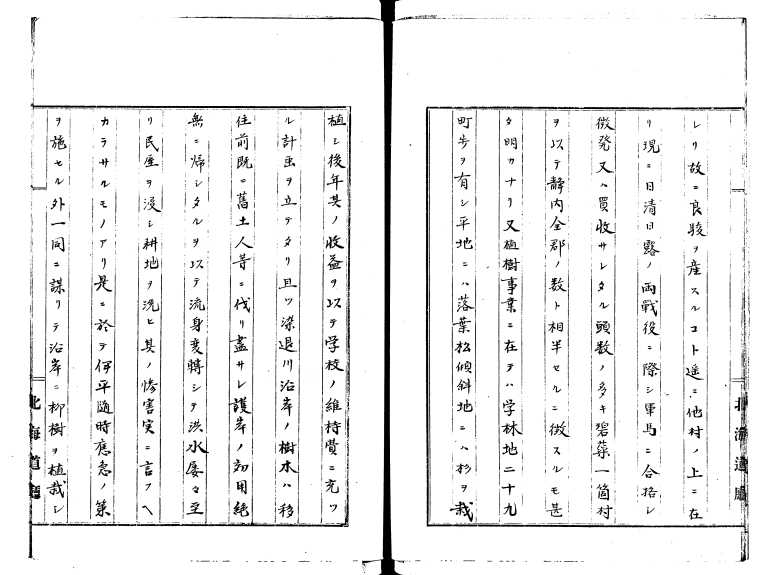 レリ故ニ良駿ヲ産スルコト遥ニ他村ノ上ニ在
リ現ニ日清日露ノ両戦役ニ際シ軍馬ニ合格シ
徴発又ハ買收サレタル頭数ノ多キ碧蘂一箇村
ヲ以テ静内全郡ノ数ト相半セルニ徴スルモ甚
タ明カナリ又植樹事業ニ在テハ学林地二十九
町歩ヲ有シ平地ニハ落葉松傾斜地ニハ杉ヲ栽
北海道廳
植シ後年其ノ收益ヲ以テ学校ノ維持費ニ充ツ
ル計画ヲ立テタリ且ツ染退川沿岸ノ樹木ハ移
住前既ニ舊土人等ニ伐リ盡サレ護岸ノ効用絶
無ニ帰シタルヲ以テ流身変轉シテ洪水屡々至
リ民屋ヲ浸シ耕地ヲ洗ヒ其ノ惨害実ニ言フヘ
カラサルモノアリ是ニ於テ伊平随時應急ノ策
ヲ施セル外一同ニ謀リテ沿岸ニ柳樹ヲ植栽シ
北海道廳